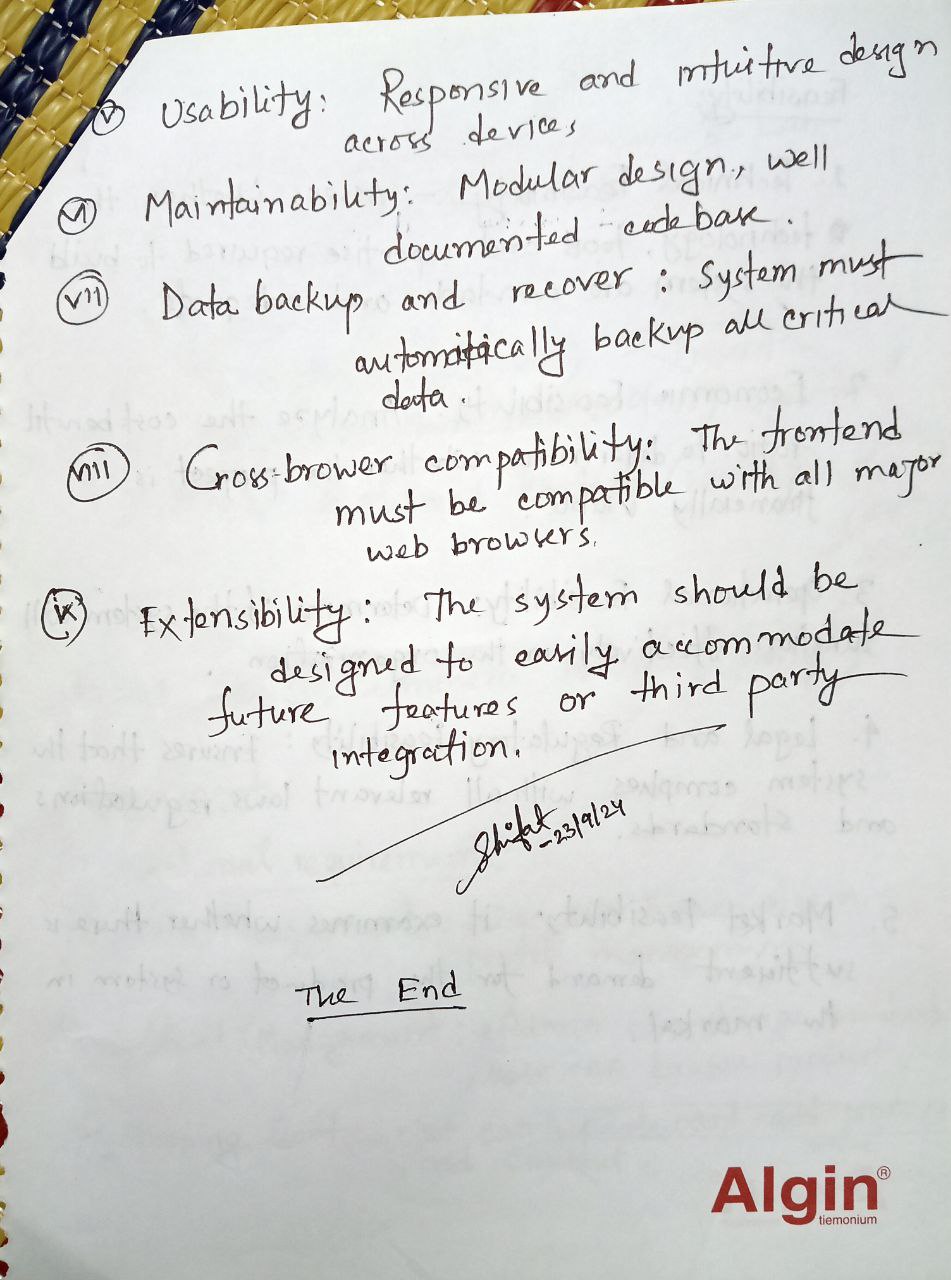 (v) Usability: Responsive and intuitive design
across devices
(vi) Maintainability: Modular design, well
documented codebase.
(vii) Data backup and recover : System must
automatically backup all critical
data.
(viii) Cross-brower compatibility: The frontend
must be compatible with all major
web browsers.
(ix) Extensibility: The system should be
designed to easily accommodate
future features or third party
integration.
Shifat
-23/9/24
The End
Algin®
tiemonium